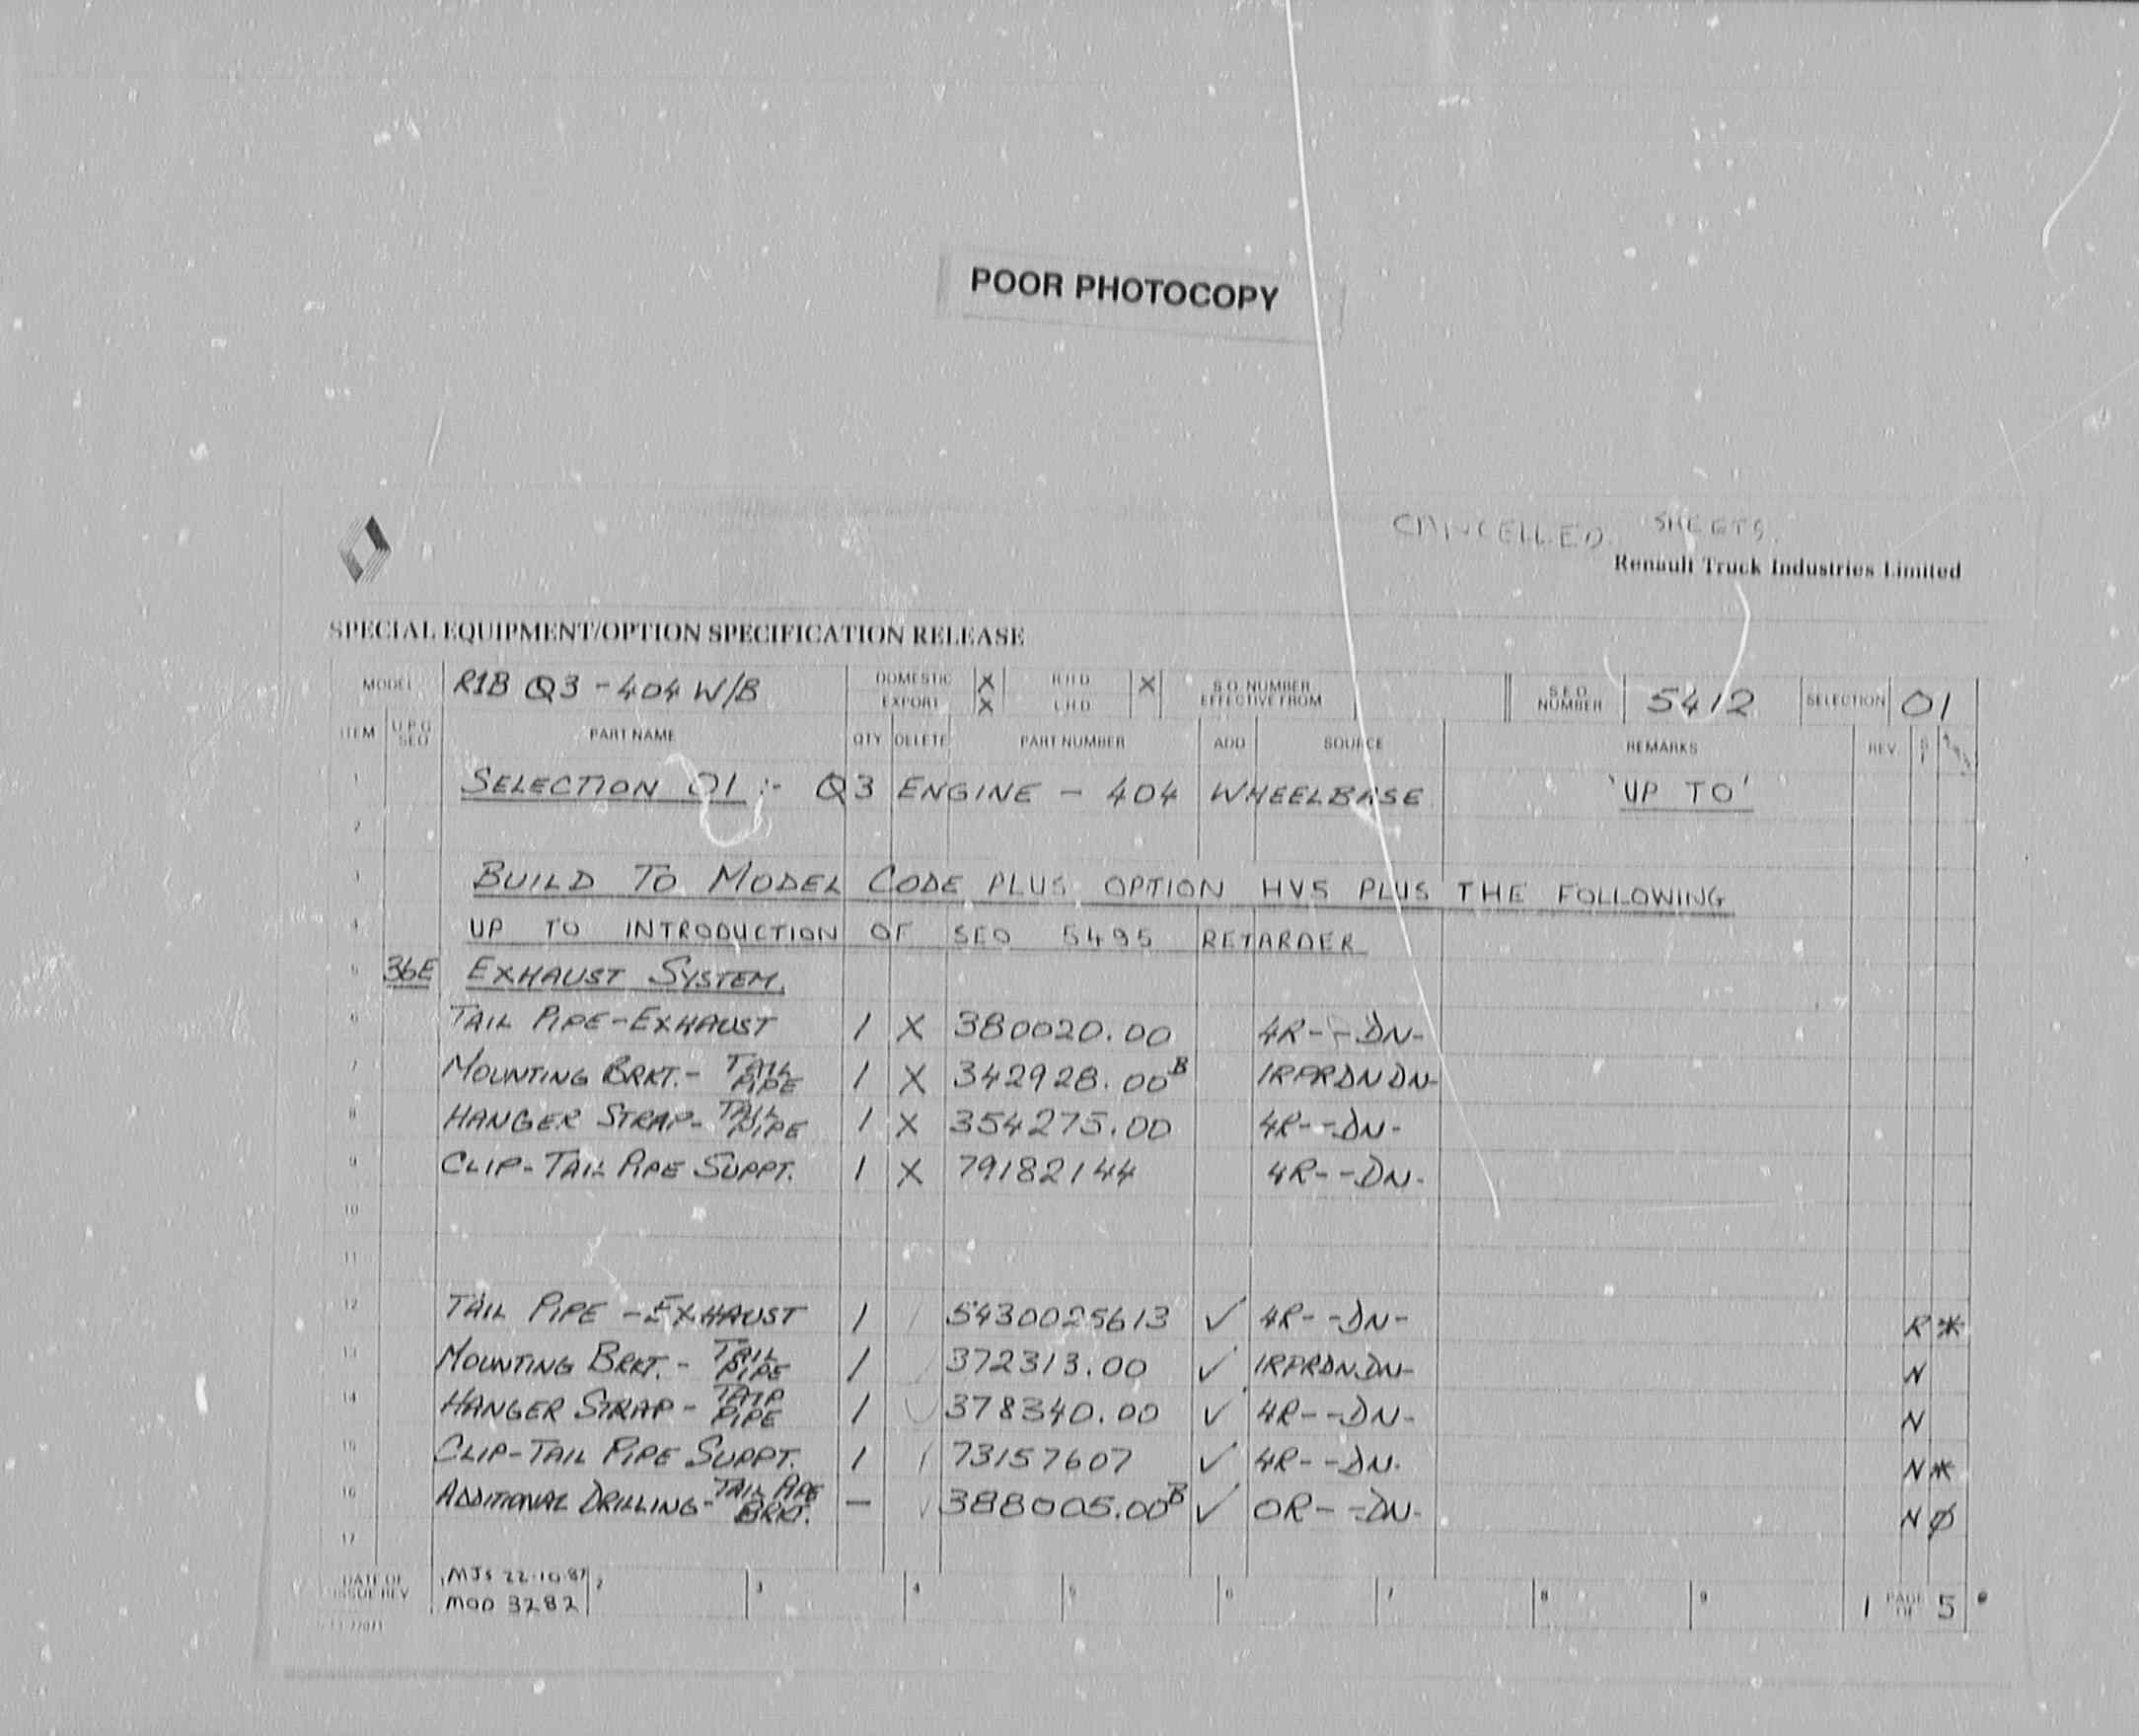 POOR PHOTOCOPY
CANCELLED. SHEETS.
Renault Truck Industries Limited
SPECIAL EQUIPMENT/OPTION SPECIFICATION RELEASE
MODEL R1B Q3 - 404 W/B DOMESTIC X R.H.D. X S.O. NUMBER EFFECTIVE FROM S.E.O. NUMBER 5412 SELECTION 01
EXPORT X L.H.D.
ITEM U.P.G. SEQ PART NAME QTY DELETE PART NUMBER ADD SOURCE REMARKS REV
1 SELECTION 01 :- Q3 ENGINE - 404 WHEELBASE 'UP TO'
2
3 BUILD TO MODEL CODE PLUS OPTION HV5 PLUS THE FOLLOWING
4 UP TO INTRODUCTION OF SEO 5495 RETARDER
5 36E EXHAUST SYSTEM.
6 TAIL PIPE-EXHAUST 1 X 380020.00 4R--DN-
7 MOUNTING BRKT.- TAIL PIPE 1 X 342928.00B 1RPRDNDN-
8 HANGER STRAP- TAIL PIPE 1 X 354275.00 4R--DN-
9 CLIP-TAIL PIPE SUPPT. 1 X 79182144 4R--DN-
10
11
12 TAIL PIPE -EXHAUST 1 5430025613 ✓ 4R--DN- R *
13 MOUNTING BRKT.- TAIL PIPE 1 372313.00 ✓ 1RPRDNDN- N
14 HANGER STRAP- TAIP PIPE 1 378340.00 ✓ 4R--DN- N
15 CLIP-TAIL PIPE SUPPT. 1 73157607 ✓ 4R--DN- N *
16 ADDITIONAL DRILLING- TAIL PIPE BRKT. - 388005.00B ✓ 0R--DN- N Ø
17
DATE OF ISSUE/REV 1 MJS 22.10.87 2 3 4 5 6 7 8 9 1 PAGE OF 5
MOD 3282